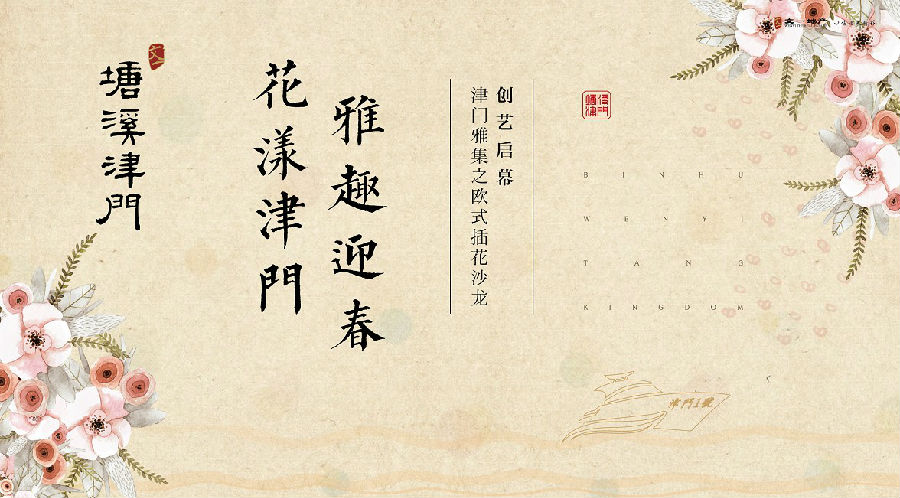 塘溪津門
雅趣迎春
花漾津門
创艺启幕
津门雅集之欧式插花沙龙
BINHU
WENYI
TANG
KINGDOM
津門1號